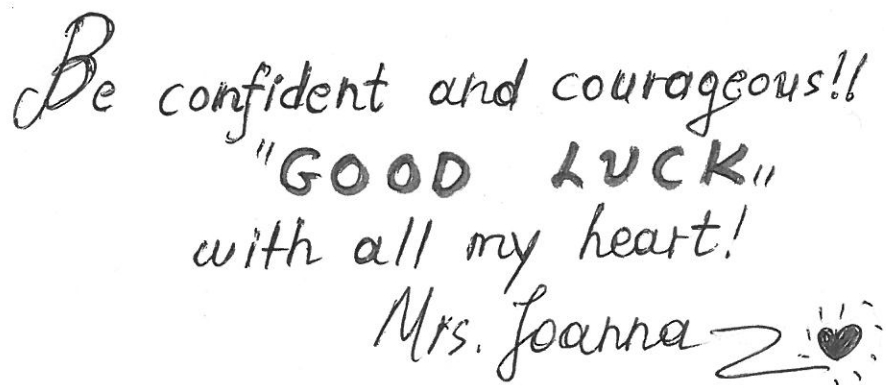 Be confident and courageous!!
"GOOD LUCK„
with all my heart!
Mrs. Joanna